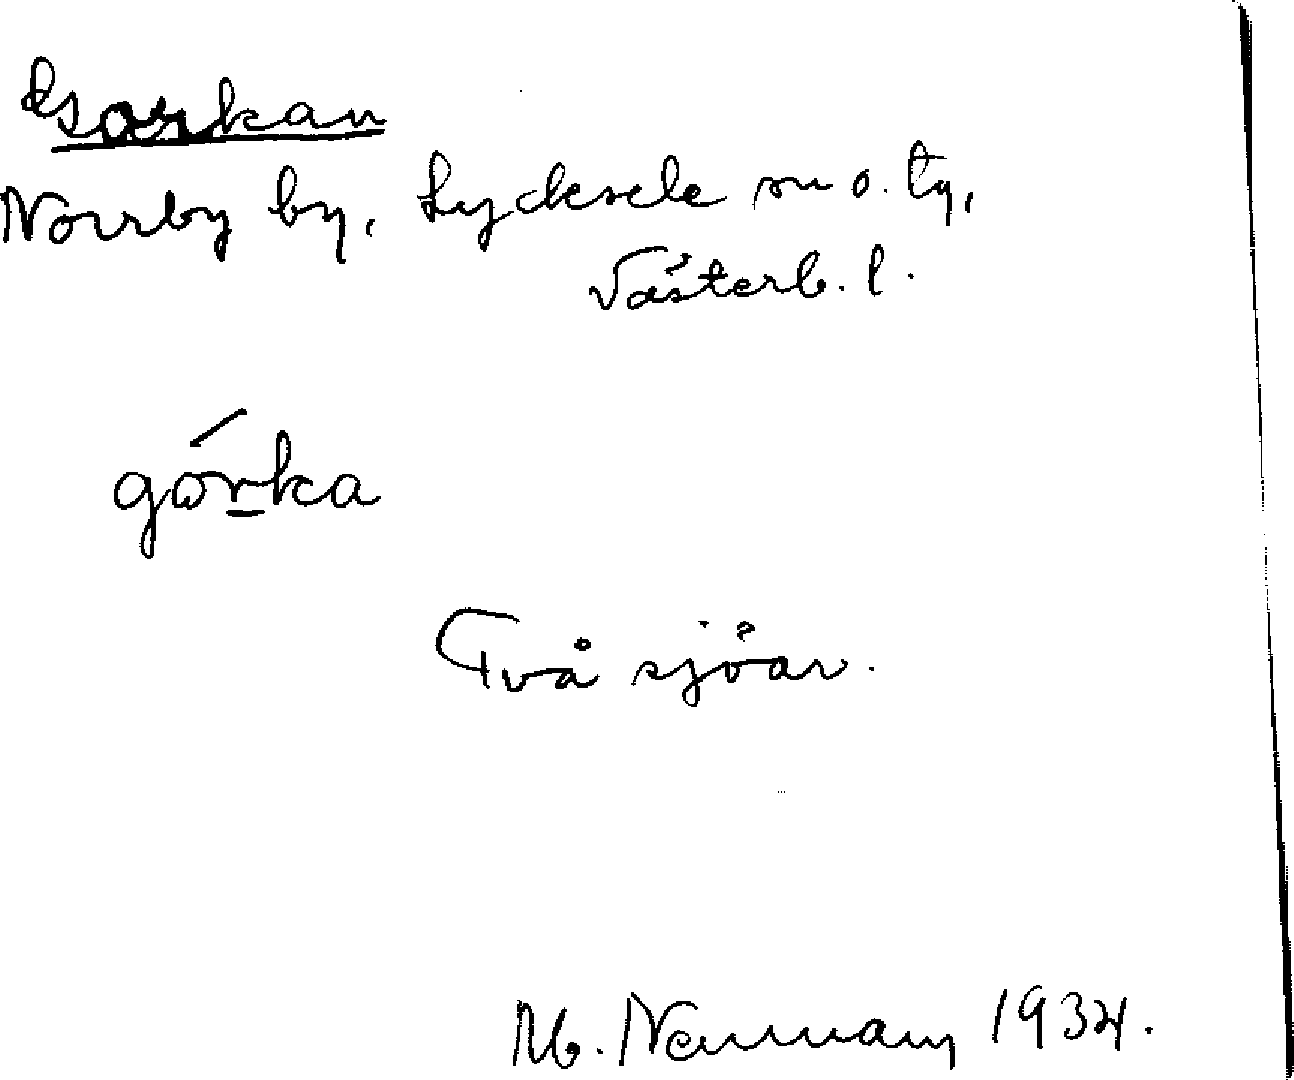 Gorrkan
Norrby by, Lycksele sn o. tg,
Västerb. l.
górka
Två sjöar.
M. Neumann, 1934.